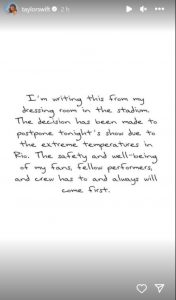 taylorswift 2 h
I'm writing this from my
dressing room in the stadium.
The decision has been made to
postpone tonight's show due to
the extreme temperatures in
Rio. The safety and well-being
of my fans, fellow performers,
and crew has to and always will
come first.